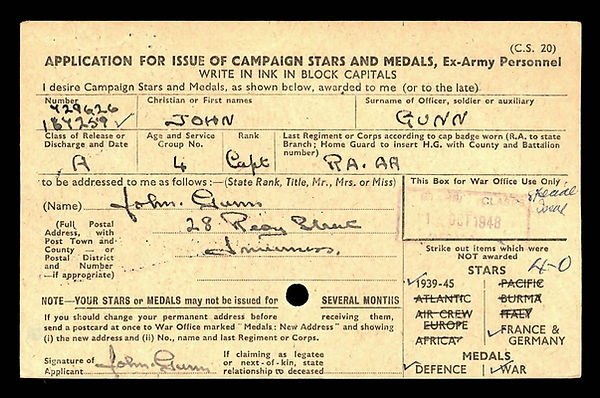 (C.S. 20)
APPLICATION FOR ISSUE OF CAMPAIGN STARS AND MEDALS, Ex-Army Personnel
WRITE IN INK IN BLOCK CAPITALS
I desire Campaign Stars and Medals, as shown below, awarded to me (or to the late)
Number Christian or First names Surname of Officer, soldier or auxiliary
429626
187259 JOHN GUNN
Class of Release or Discharge and Date Age and Service Group No. Rank Last Regiment or Corps according to cap badge worn (R.A. to state Branch; Home Guard to insert H.G. with County and Battalion number)
A 4 Capt RA. AA
to be addressed to me as follows:—(State Rank, Title, Mr., Mrs. or Miss)
(Name) John. Gunn
(Full Postal Address, with Post Town and County — or Postal District and Number —if appropriate)
28 Reay Street
Inverness.
This Box for War Office Use Only
OCT 1948
Strike out items which were NOT awarded
4-0
STARS
1939-45 PACIFIC
ATLANTIC BURMA
AIR CREW EUROPE ITALY
AFRICA FRANCE & GERMANY
MEDALS
DEFENCE WAR
NOTE—YOUR STARS or MEDALS may not be issued for SEVERAL MONTHS
If you should change your permanent address before receiving them,
send a postcard at once to War Office marked "Medals: New Address" and showing
(i) the new address and (ii) No., name and last Regiment or Corps.
Signature of Applicant John. Gunn If claiming as legatee or next-of-kin, state relationship to deceased